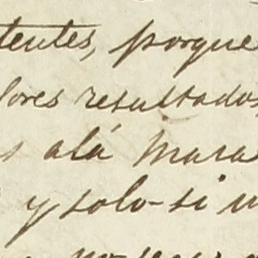 tentes, porque
lores resultados
s alá mara
y solo-si